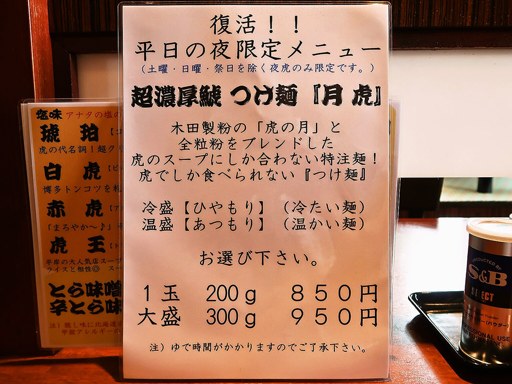 復活！！
平日の夜限定メニュー
（土曜・日曜・祭日を除く夜虎のみ限定です。）
超濃厚鯱 つけ麺『月 虎』
木田製粉の「虎の月」と
全粒粉をブレンドした
虎のスープにしか合わない特注麺！
虎でしか食べられない『つけ麺』
冷盛【ひやもり】（冷たい麺）
温盛【あつもり】（温かい麺）
お選び下さい。
1玉 200g 850円
大盛 300g 950円
注）ゆで時間がかかりますのでご了承下さい。
塩味 アナタの塩の
琥珀
虎の代名詞！超ク
白虎
博多トンコツを
赤虎
「まろやか～♪」
虎王
とら味噌
辛とら味
S&B